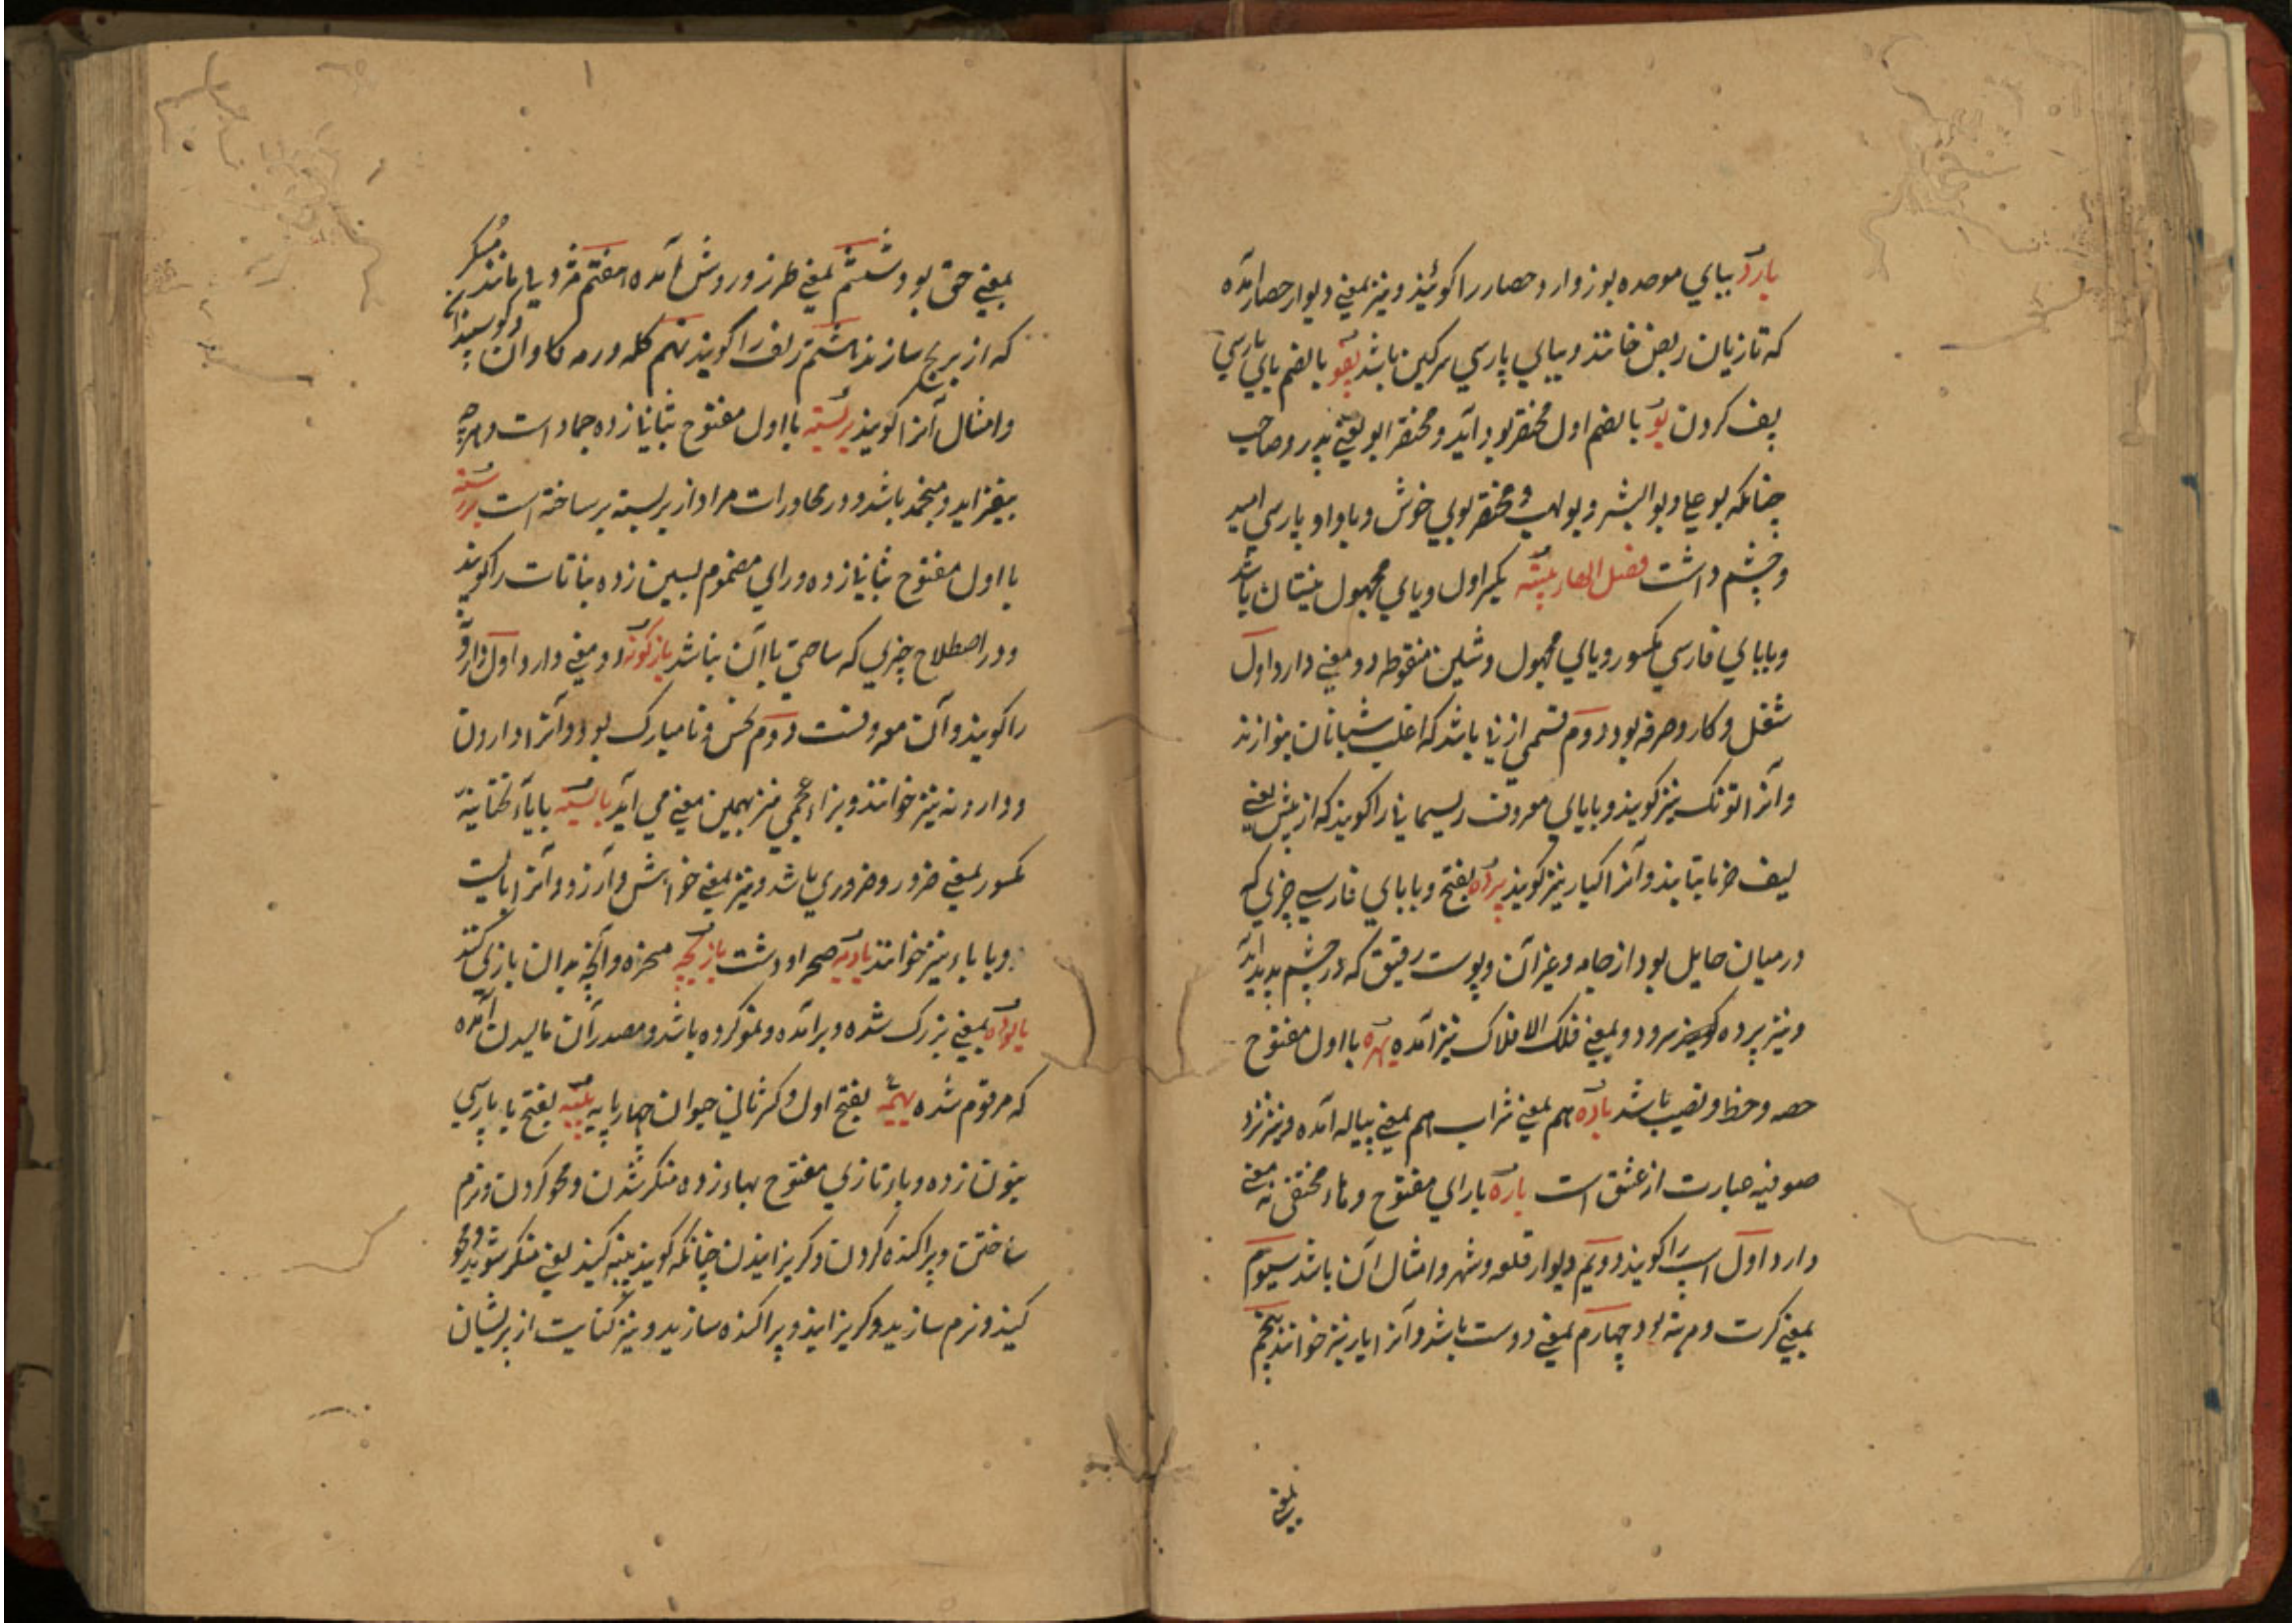 بارو ببای موحده بوزوارو حصار را کویند و نیز بمعنی دیوار حصار آمده
که تازیان ربض خانند و ببای پارسی سرکین باشد پفو بالضم بای پارسی
پف کردن بو بالضم اول مختصر بود آید و مختصر ابو یعنی پدر و صاحب
چنانکه بو علی و بو البشر و بو لهب و مختصر بوی خوش و با واو پارسی امید
و چشم داشت فصل الهار بیشه بکسر اول و یای مجهول نیستان باشد
و ببای فارسی مکسور و یای مجهول و شین منقوطه دو معنی دارد اول
شغل و کار و حرفه بود دوم قسمی از نی باشد که اغلب شبانان نوازند
و آنرا توتک نیز کویند و با یای معروف ریسمانی را کویند که از پیش یعنی
لیف خرما تابند و آنرا کبار نیز کویند پرده بفتح و ببای فارسی چیزی که
درمیان حایل بود از جامه و غیر آن و پوست رقیق که در چشم پدید آید
و نیز پرده سرود و بمعنی فلک الافلاک نیز آمده بهره با اول مفتوح
حصه و حظ و نصیب باشد باده هم بمعنی شراب هم بمعنی پیاله آمده و نیز نزد
صوفیه عبارت از عشق است باره با رای مفتوح و هاء مختفی نه معنی
دارد اول اسپ را کویند دویم دیوار قلعه و شهر و امثال آن باشد سیوم
بمعنی کرت و مرتبه بود چهارم بمعنی دوست باشد و آنرا یار نیز خوانند پنجم
بمعنی
بمعنی حق بود ششم بمعنی طرز و روش آمده هفتم
که از برنج سازند هشتم زلف را کویند نهم کله و رمه کاوان و کوسپندان
و امثال آنرا کویند بربسته با اول مفتوح بثانی زده جماد است
بیفزاید و منجمد باشد و در محاورات مراد از بربسته برساخته است بررسته
با اول مفتوح بثانی زده و رای مضموم بسین زده نباتات را کویند
و در اصطلاح چیزی که ساختی با آن نباشد بازکونه دو معنی دارد اول
را کویند و آن معروفست دوم نحس و نامبارک بود و آنرا وارون
و وارونه نیز خوانند و بزاء عجمی نیز بهمین معنی می آید بایسته بایاء تحتانیه
مکسور بمعنی ضرور و ضروری باشد و نیز بمعنی خواهش و آرزو و آنرا بایست
و با باء نیز خوانند بادیه صحرا و دشت بازیچه مسخره و آنچه بدان بازی کنند
بالوده بمعنی بزرک شده و برآمده و نمو کرده باشد و مصدر آن بالیدن آمده
که مرقوم شده بهیمه بفتح اول و کسر ثانی حیوان چهارپایه پنبه بفتح با پارسی
بنون زده و باء تازی مفتوح بهاء زده منکر شدن و محو کردن و نرم
ساختن و پراکنده کردن و کریزانیدن چنانکه کویند پنبه کنید یعنی منکر شوید و محو
کنید و نرم سازید و کریزانید و پراکنده سازید و نیز کنایت از پریشان